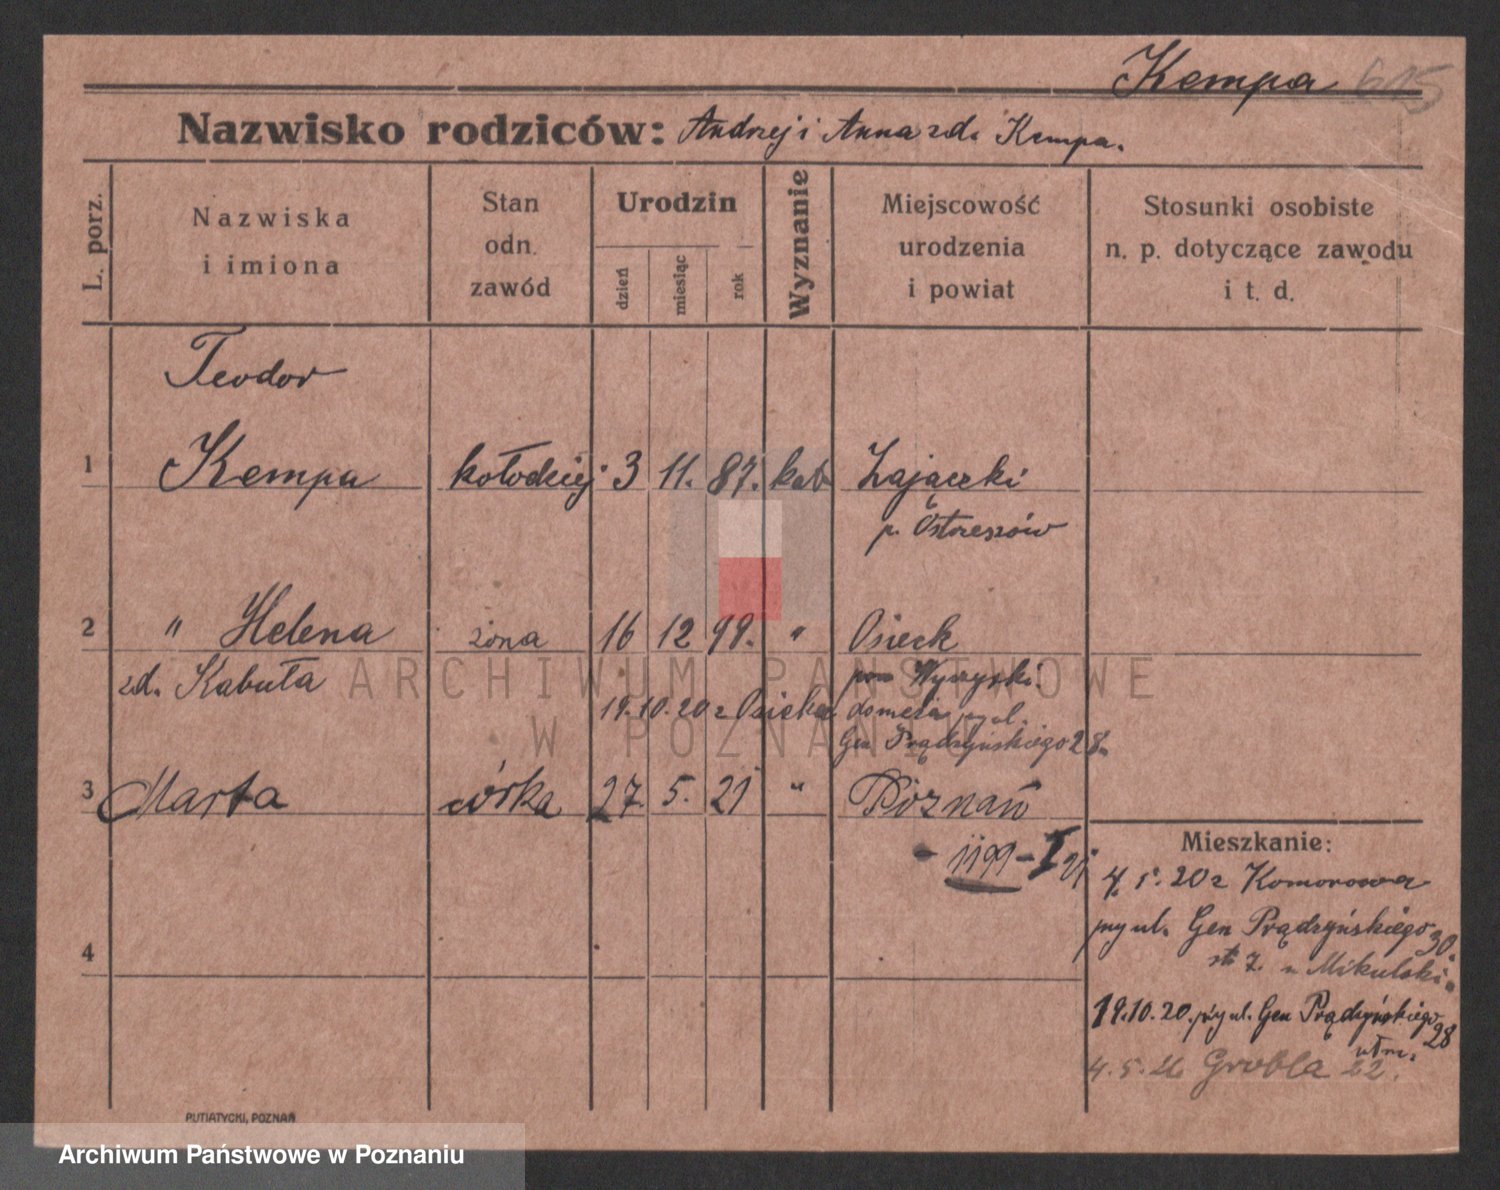 Kempa 615
Nazwisko rodziców: Andrzej i Anna zd. Kempa.
L. porz.
Nazwiska
i imiona
Stan
odn.
zawód
Urodzin
dzień
miesiąc
rok
Wyznanie
Miejscowość
urodzenia
i powiat
Stosunki osobiste
n. p. dotyczące zawodu
i t. d.
Teodor
1 Kempa kołodziej 3 11. 87. kat Zajączki
p. Ostrzeszów
2 " Helena żona 16 12 99. " Osieck
zd. Kabuła
pow Wyrzyski.
19.10.20 z Osieka
przy ul.
Gen Prądzyńskiego 28.
3 Marta córka 27. 5. 21 " Poznań
1199-I 21
Mieszkanie:
4. 5. 20 z Komorowa
przy ul. Gen Prądzyńskiego 30.
u Mikulski
4
19.10.20. przy ul. Gen Prądzyńskiego 28
4. 5. 26 Grobla 22.
PUTIATYCKI, POZNAŃ
ARCHIWUM PAŃSTWOWE
W POZNANIU
Archiwum Państwowe w Poznaniu